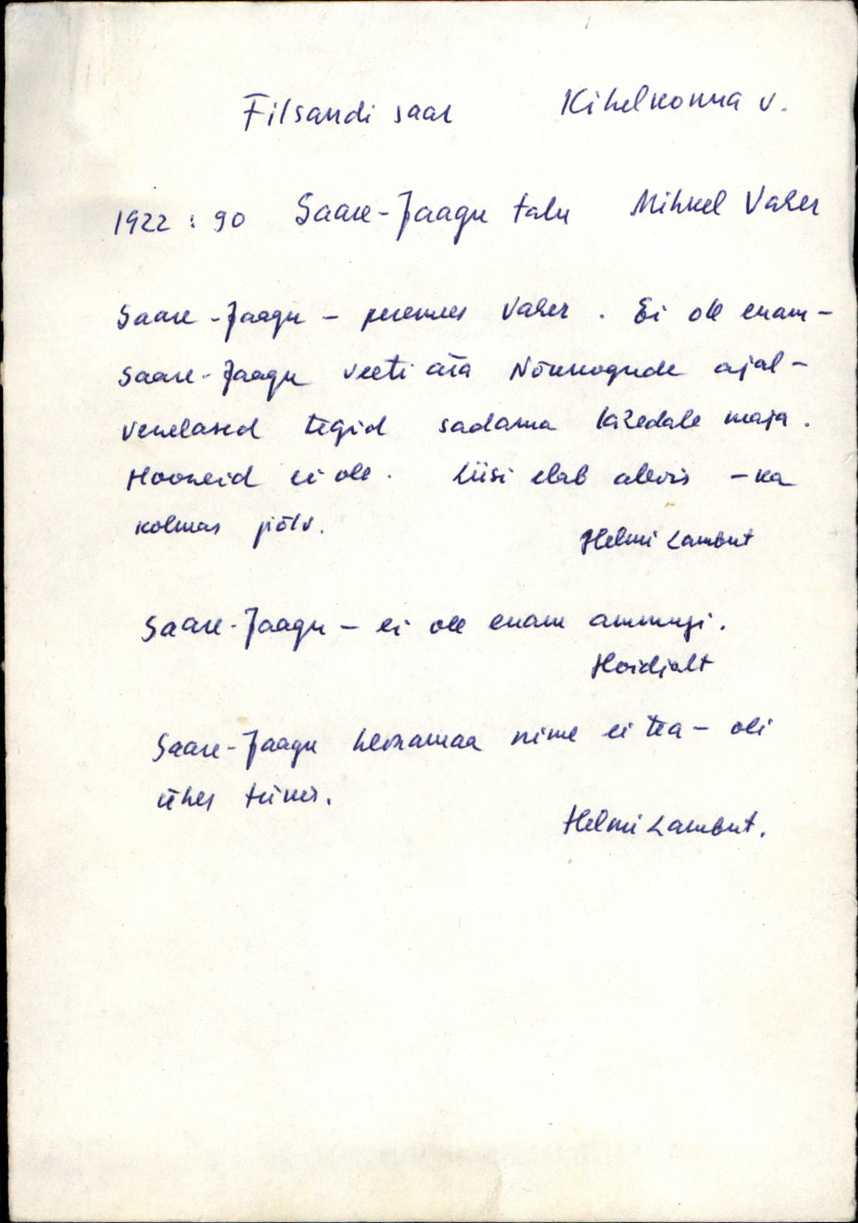 Filsandi saar Kihelkonna v.
1922 : 90 Saare-Jaagu talu Mihkel Vaher
Saare-Jaagu – peremees Vaher. Ei ole enam –
Saare-Jaagu veeti ära Nõukogude ajal –
venelased tegid sadama lähedale maja.
Hooneid ei ole. Liisi elab alevis – ka
kolmas põlv.
Helmi Lambut
Saare-Jaagu – ei ole enam ammugi.
Hoidjalt
Saare-Jaagu heinamaa nime ei tea – oli
ühes tükis.
Helmi Lambut.